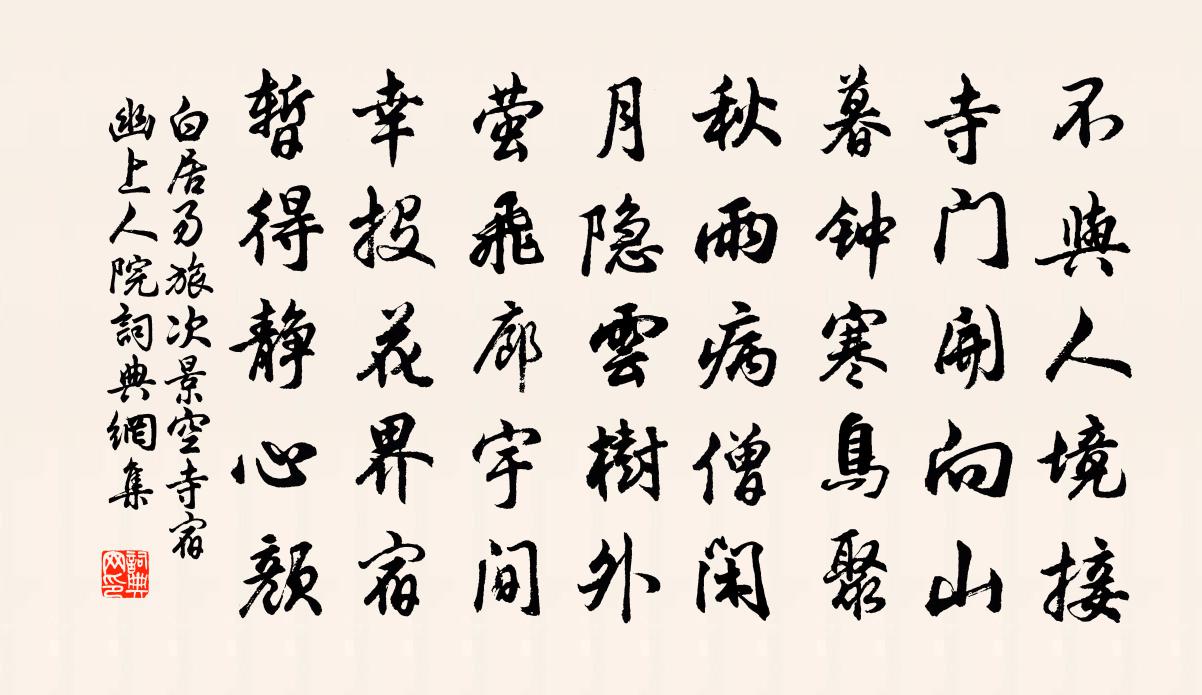 不與人境接
寺门開向山
暮钟寒鳥聚
秋雨病僧闲
月隐雲樹外
萤飛廊宇间
幸投花界宿
暫得静心顔
白居易旅次景空寺宿
幽上人院詞典網集
詞典网印